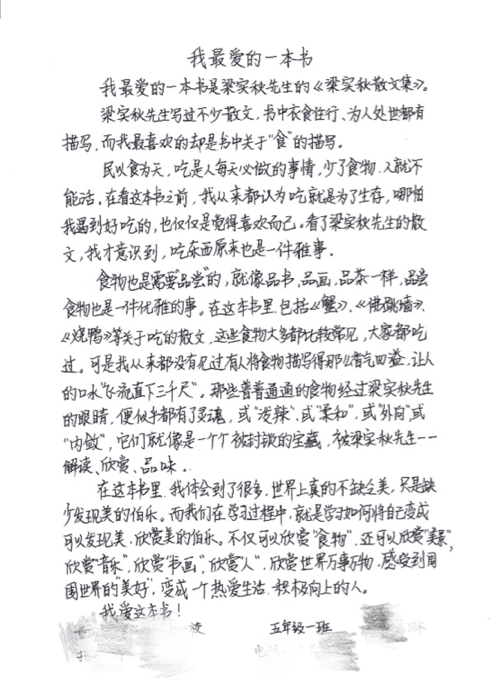 我最爱的一本书
我最爱的一本书是梁实秋先生的《梁实秋散文集》。
梁实秋先生写过不少散文，书中衣食住行、为人处世都有
描写，而我最喜欢的却是书中关于“食”的描写。
民以食为天，吃是人每天必做的事情，少了食物，人就不
能活。在看这本书之前，我从来都认为吃就是为了生存，哪怕
我遇到好吃的，也仅仅是觉得喜欢而已。看了梁实秋先生的散
文，我才意识到，吃东西原来也是一件雅事。
食物也是需要“品尝”的，就像品书，品画，品茶一样，品尝
食物也是一件优雅的事。在这本书里，包括《蟹》、《佛跳墙》、
《烧鸭》等关于吃的散文，这些食物大多都比较常见，大家都吃
过。可是我从来都没有见过有人将食物描写得那么香气四溢，让人
的口水“飞流直下三千尺”。那些普普通通的食物经过梁实秋先生
的眼睛，便似乎都有了灵魂，或“泼辣”、或“柔和”，或“外向”或
“内敛”，它们就像是一个个被封锁的宝藏，被梁实秋先生一一
解读、欣赏、品味。
在这本书里，我体会到了很多，世界上真的不缺乏美，只是缺
少发现美的伯乐。而我们在学习过程中，就是学习如何将自己变成
可以发现美、欣赏美的伯乐。不仅可以欣赏“食物”，还可以欣赏“美景”，
欣赏“音乐”，欣赏“书画”，欣赏“人”，欣赏世界万事万物，感受到周
围世界的“美好”，变成一个热爱生活、积极向上的人。
我爱这本书！
五年级一班